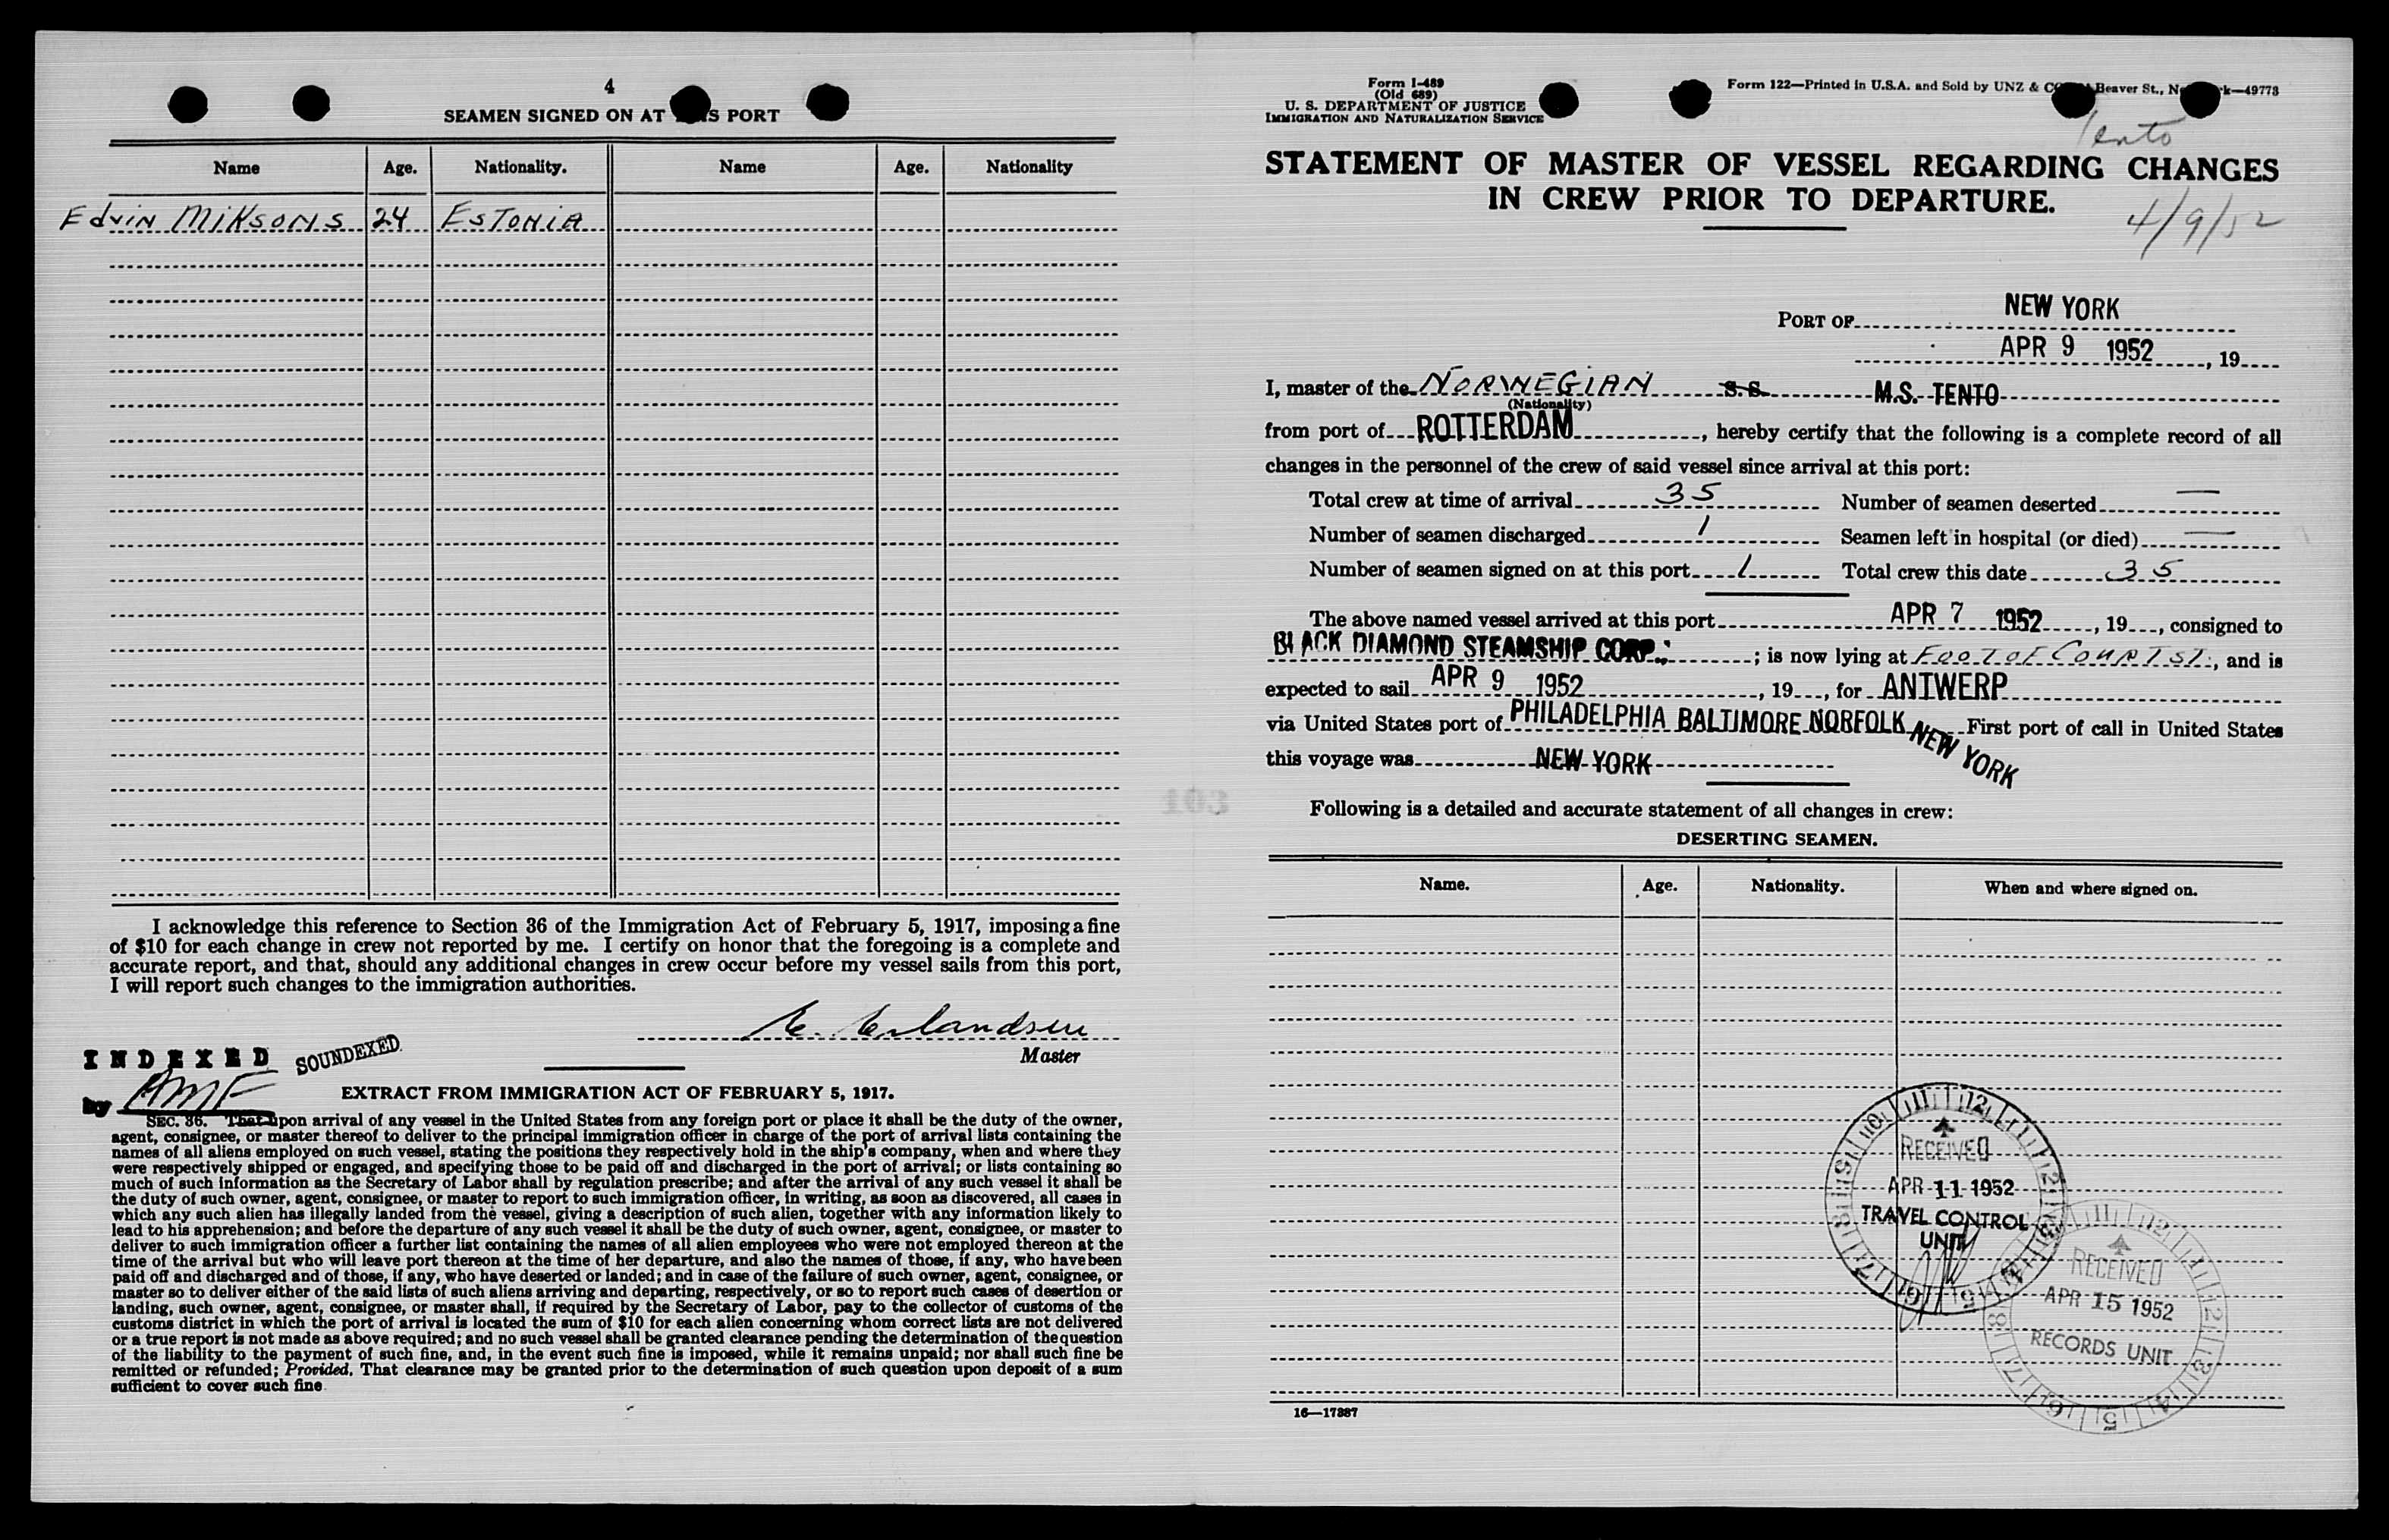 4
SEAMEN SIGNED ON AT S PORT
Name Age. Nationality. Name Age. Nationality
Edvin Miksons 24 Estonia
I acknowledge this reference to Section 36 of the Immigration Act of February 5, 1917, imposing a fine
of $10 for each change in crew not reported by me. I certify on honor that the foregoing is a complete and
accurate report, and that, should any additional changes in crew occur before my vessel sails from this port,
I will report such changes to the immigration authorities.
Master
INDEXED SOUNDEXED
by AMF
EXTRACT FROM IMMIGRATION ACT OF FEBRUARY 5, 1917.
SEC. 36. That upon arrival of any vessel in the United States from any foreign port or place it shall be the duty of the owner,
agent, consignee, or master thereof to deliver to the principal immigration officer in charge of the port of arrival lists containing the
names of all aliens employed on such vessel, stating the positions they respectively hold in the ship's company, when and where they
were respectively shipped or engaged, and specifying those to be paid off and discharged in the port of arrival; or lists containing so
much of such information as the Secretary of Labor shall by regulation prescribe; and after the arrival of any such vessel it shall be
the duty of such owner, agent, consignee, or master to report to such immigration officer, in writing, as soon as discovered, all cases in
which any such alien has illegally landed from the vessel, giving a description of such alien, together with any information likely to
lead to his apprehension; and before the departure of any such vessel it shall be the duty of such owner, agent, consignee, or master to
deliver to such immigration officer a further list containing the names of all alien employees who were not employed thereon at the
time of the arrival but who will leave port thereon at the time of her departure, and also the names of those, if any, who have been
paid off and discharged and of those, if any, who have deserted or landed; and in case of the failure of such owner, agent, consignee, or
master so to deliver either of the said lists of such aliens arriving and departing, respectively, or so to report such cases of desertion or
landing, such owner, agent, consignee, or master shall, if required by the Secretary of Labor, pay to the collector of customs of the
customs district in which the port of arrival is located the sum of $10 for each alien concerning whom correct lists are not delivered
or a true report is not made as above required; and no such vessel shall be granted clearance pending the determination of the question
of the liability to the payment of such fine, and, in the event such fine is imposed, while it remains unpaid; nor shall such fine be
remitted or refunded; Provided, That clearance may be granted prior to the determination of such question upon deposit of a sum
sufficient to cover such fine
Form I-489
(Old 689)
U. S. DEPARTMENT OF JUSTICE
IMMIGRATION AND NATURALIZATION SERVICE
Form 122—Printed in U.S.A. and Sold by UNZ & Beaver St., k—49773
Tento
STATEMENT OF MASTER OF VESSEL REGARDING CHANGES
IN CREW PRIOR TO DEPARTURE.
4/9/52
PORT OF NEW YORK
APR 9 1952, 19
I, master of the NORWEGIAN S. S. M.S. TENTO
(Nationality)
from port of ROTTERDAM, hereby certify that the following is a complete record of all
changes in the personnel of the crew of said vessel since arrival at this port:
Total crew at time of arrival 35 Number of seamen deserted —
Number of seamen discharged 1 Seamen left in hospital (or died) —
Number of seamen signed on at this port 1 Total crew this date 35
The above named vessel arrived at this port APR 7 1952, 19, consigned to
BLACK DIAMOND STEAMSHIP CORP.; is now lying at FOOT OF COURT ST., and is
expected to sail APR 9 1952, 19, for ANTWERP
via United States port of PHILADELPHIA BALTIMORE NORFOLK NEW YORK First port of call in United States
this voyage was NEW YORK
Following is a detailed and accurate statement of all changes in crew:
DESERTING SEAMEN.
Name. Age. Nationality. When and where signed on.
RECEIVED
APR 11 1952
TRAVEL CONTROL
UNIT
RECEIVED
APR 15 1952
RECORDS UNIT
16—17387